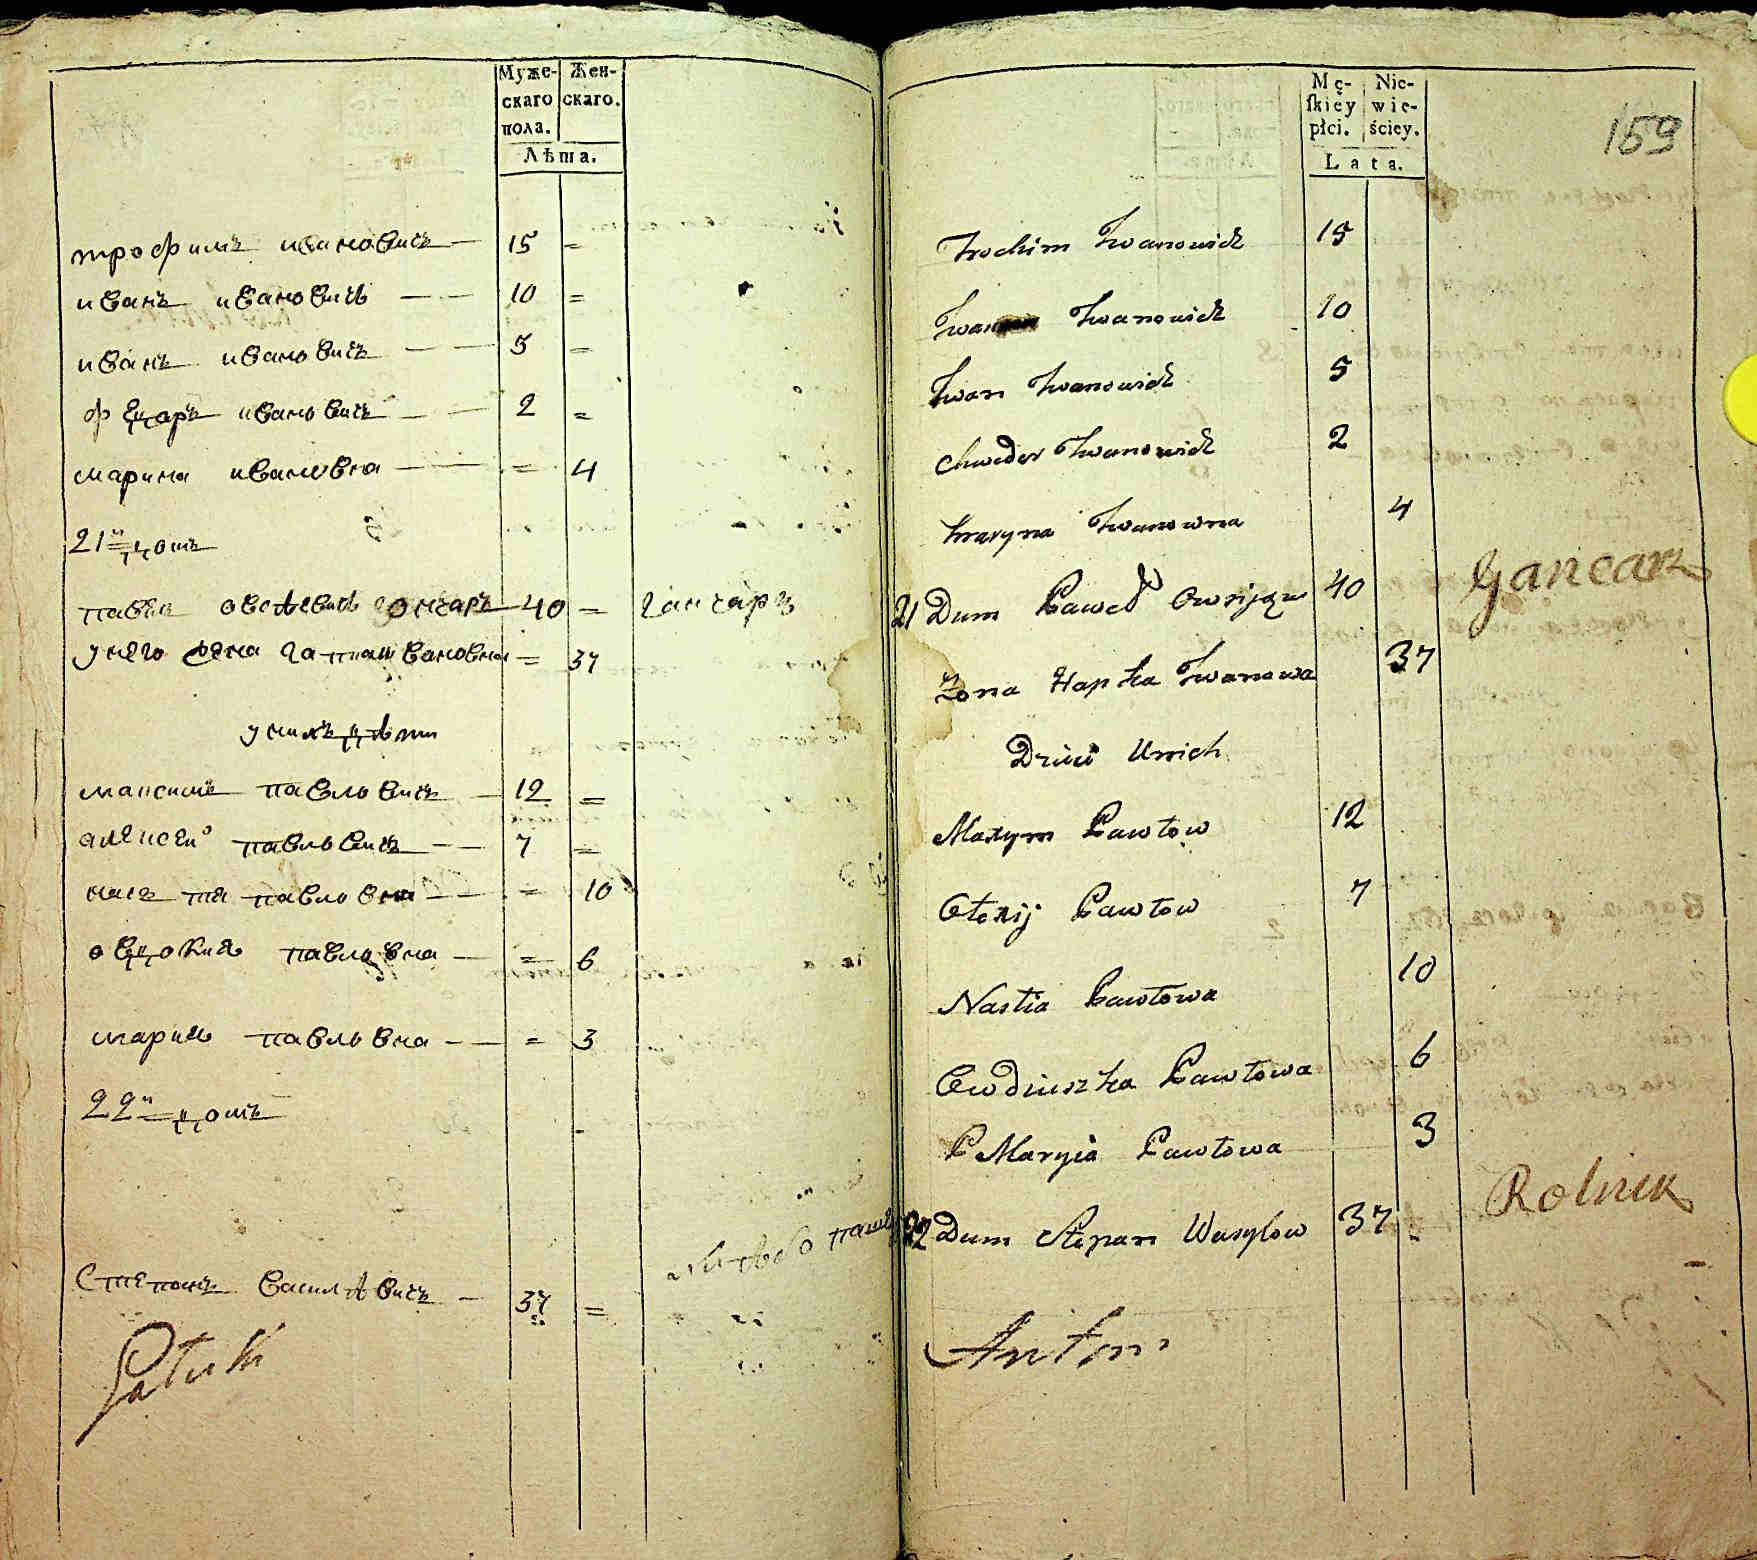 Муже- Жен-
скаго скаго.
пола.
Лѣта.
трофимъ ивановичъ 15 =
иванъ ивановичъ 10 =
иванъ ивановичъ 5 =
фѣдоръ ивановичъ 2 =
марина ивановна = 4
21й домъ
павелъ овсѣевичъ гончаръ 40 = ганчаръ
унего жена гапка ивановна = 37
унихъ дѣти
максимъ павловичъ 12 =
алексей павловичъ 7 =
настя павловна = 10
овдокия павловна = 6
мария павловна = 3
22й домъ
Степанъ василѣвичъ 37 =
Mę- Nie-
ſkiey wie-
płci. ściey.
Lata.
159
Trochim Iwanowicz 15
Iwan Iwanowicz 10
Iwan Iwanowicz 5
Chweder Iwanowicz 2
Maryna Iwanowna 4
21 Dum Paweł Owsijew 40 Gancarz
Żona Hapka Iwanowa 37
Dzieci Unich
Maxym Pawłow 12
Ołexij Pawłow 7
Nastia Pawłowa 10
Owdiuszka Pawłowa 6
Maryia Pawłowa 3
22 Dum Stepan Wasylow 37 Rolnik
Antoni